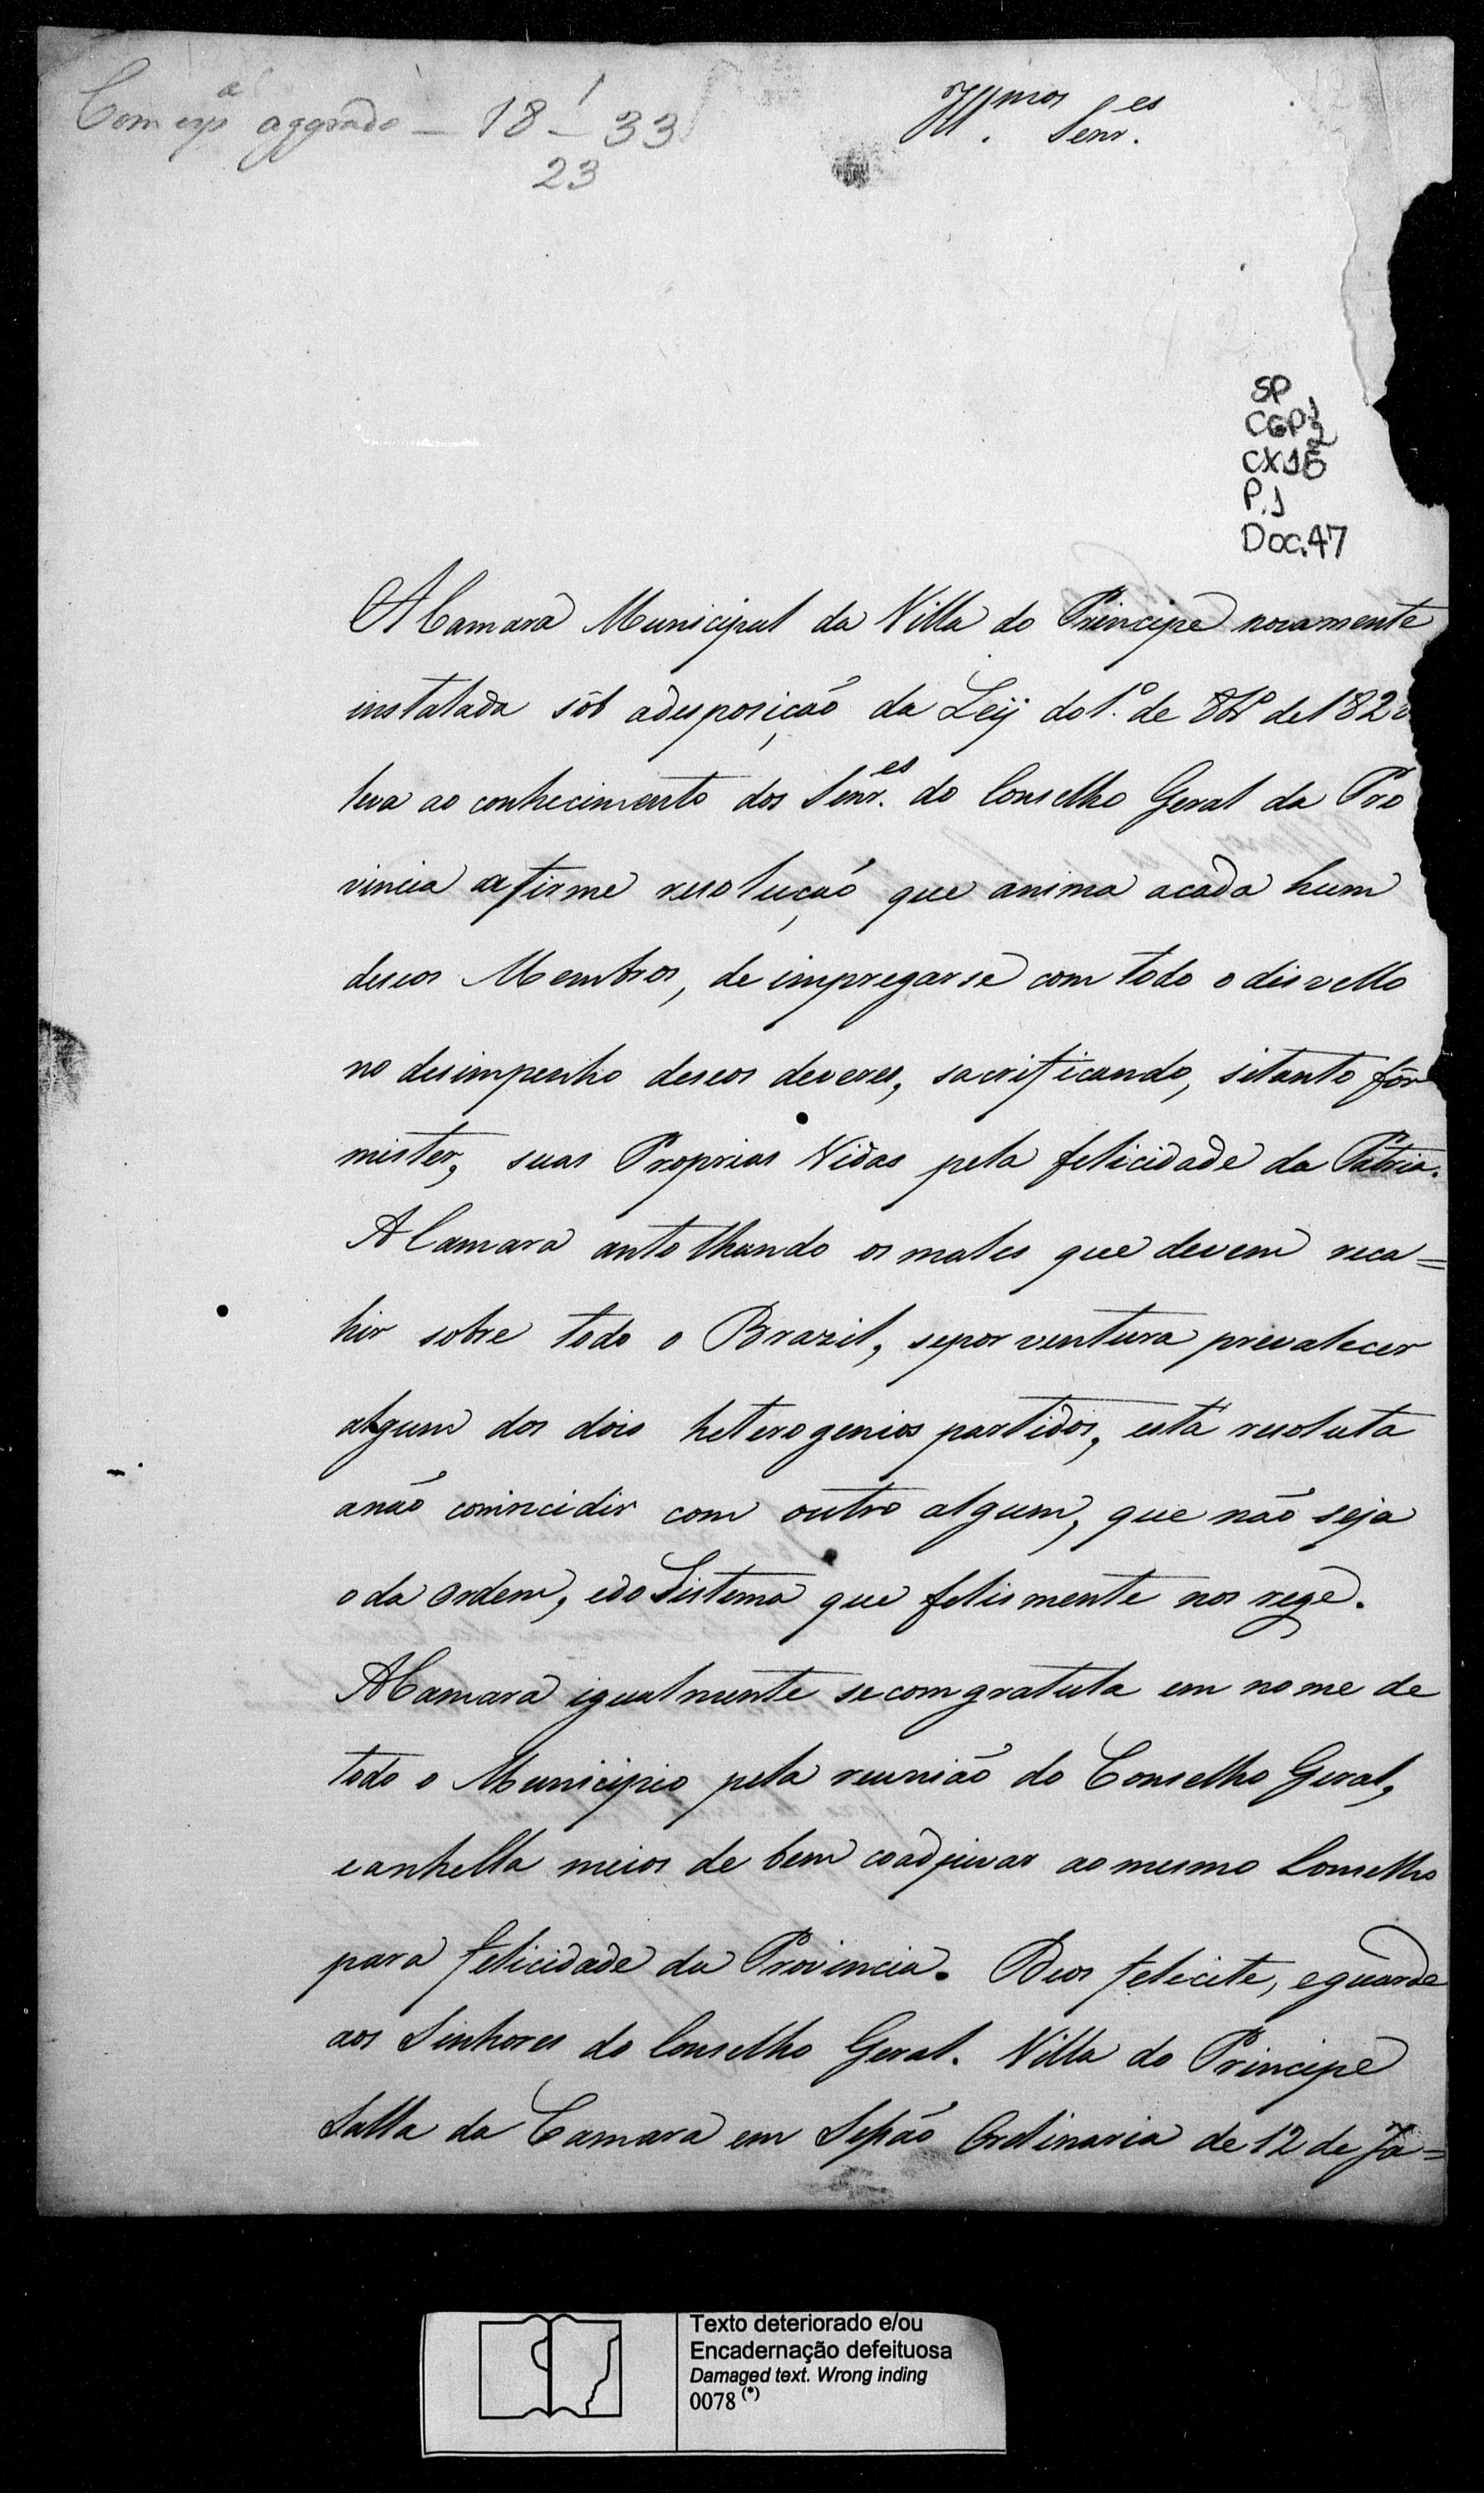 Com espᵃˡ aggrado — 18 — 1/23 — 33
Illmos Senr.es
SP
CGP1
2
CX15
P.1
Doc.47
A Camara Municipal da Villa do Principe novamente
instalada sób adisposição da Leij do 1.º de 8bro de 182
leva ao conhecimento dos Senr.es do Conselho Geral da Pro
vincia afirme resolução que anima acada hum
deseos Membros, de impregarse com todo o disvello
no desimpenho deseos deveres, sacrificando, sitanto fôr
mister, suas Proprias Vidas pela felicidade da Patria.
A Camara antolhando os males que devem reca=
hir sobre todo o Brazil, sepor ventura prevalecer
algum dos dois heterogenios partidos, está resoluta
anão conincidir com outro algum, que não seja
o da ordem, edo Sistema que felismente nos rege.
A Camara igualmente secomgratula em nome de
todo o Municipio pela reunião do Conselho Geral,
eanhella meios de bem coadjuvar ao mesmo Conselho
para felicidade da Provincia. Deos felicite, eguarde
aos Sinhores do Conselho Geral. Villa do Principe
Salla da Camara em Sessão Ordinaria de 12 de Ja=
Texto deteriorado e/ou
Encadernação defeituosa
Damaged text. Wrong inding
0078 (*)